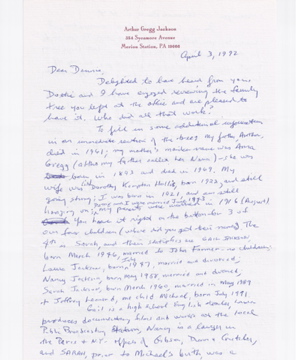 Arthur Gregg Jackson
354 Sycamore Avenue
Merion Station, PA 19066
April 3, 1992
Dear Dennis,
Delighted to have heard from you.
Dottie and I have enjoyed reviewing the family
tree you left at the office and are pleased to
have it. Who did all that work?
To fill in some additional information
on an immediate section of the tree, my father, Arthur,
died in 1961; my mother's maiden name was Anna
Gregg (after my father called her Nan) - she was
born in 1883 and died in 1969. My
wife was Dorothy born 1923, and still
going strong; I was born in 1921, and am still
hanging on;
You have it right on the bottom 3 of
our four children (where did you get their names) The
4th is Sarah, and their statistics are
born March 1946, married to John no children;
Laura Jackson, born, July 1947, married and divorced,
Nancy Jackson, born May 1958, married and divorced,
Sarah Jackson, born March 1960, married in May 1989
to Jeffrey and child Michael, born July 1991
Gail is a high school English teacher, Laura
produces documentary films and works at the local
Public Nancy is a lawyer in
the Paris + N.Y. offices of Gibson, Dunn + Crutcher,
and Sarah, prior to Michael's birth was a